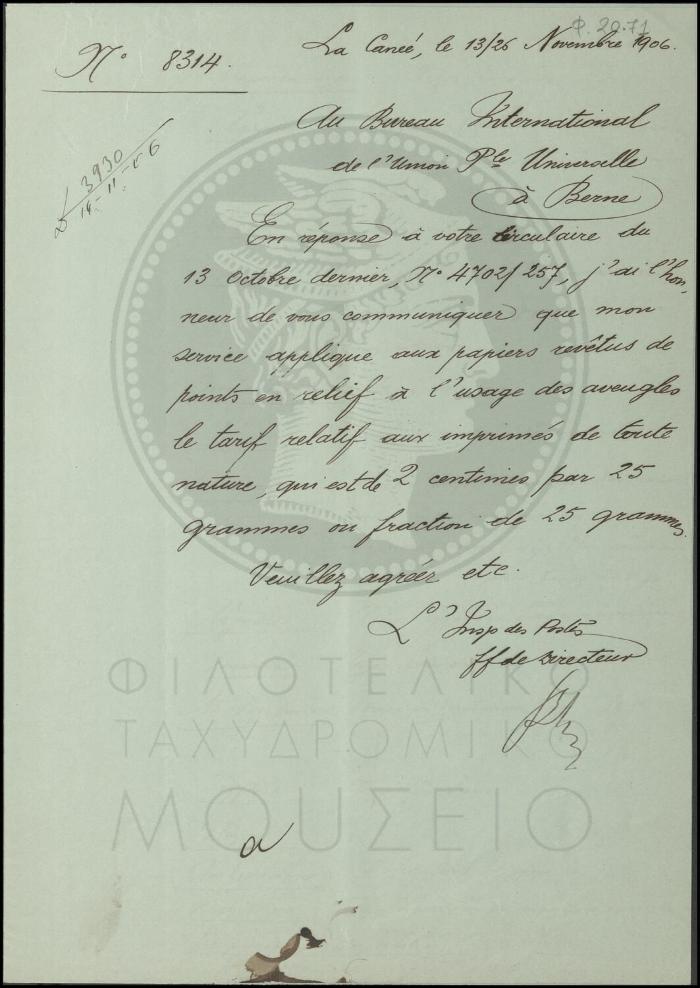 Φ. 20.71
Nº 8314.
La Caneé, le 13/26 Novembre 1906.
3930
Au Bureau International
de l'Union Ple Universelle
à Berne
En réponse à votre circulaire du
13 Octobre dernier, Nº 4702/257, j'ai l'hon,
neur de vous communiquer que mon
service applique aux papiers revêtus de
points en relief à l'usage des aveugles
le tarif relatif aux imprimés de toute
nature, qui est de 2 centimes par 25
grammes ou fraction de 25 grammes.
Veuillez agréer etc.
L'Insp des Postes
ff de Directeur
ΦΙΛΟΤΕΛΙΚΟ
ΤΑΧΥΔΡΟΜΙΚΟ
ΜΟΥΣΕΙΟ
a